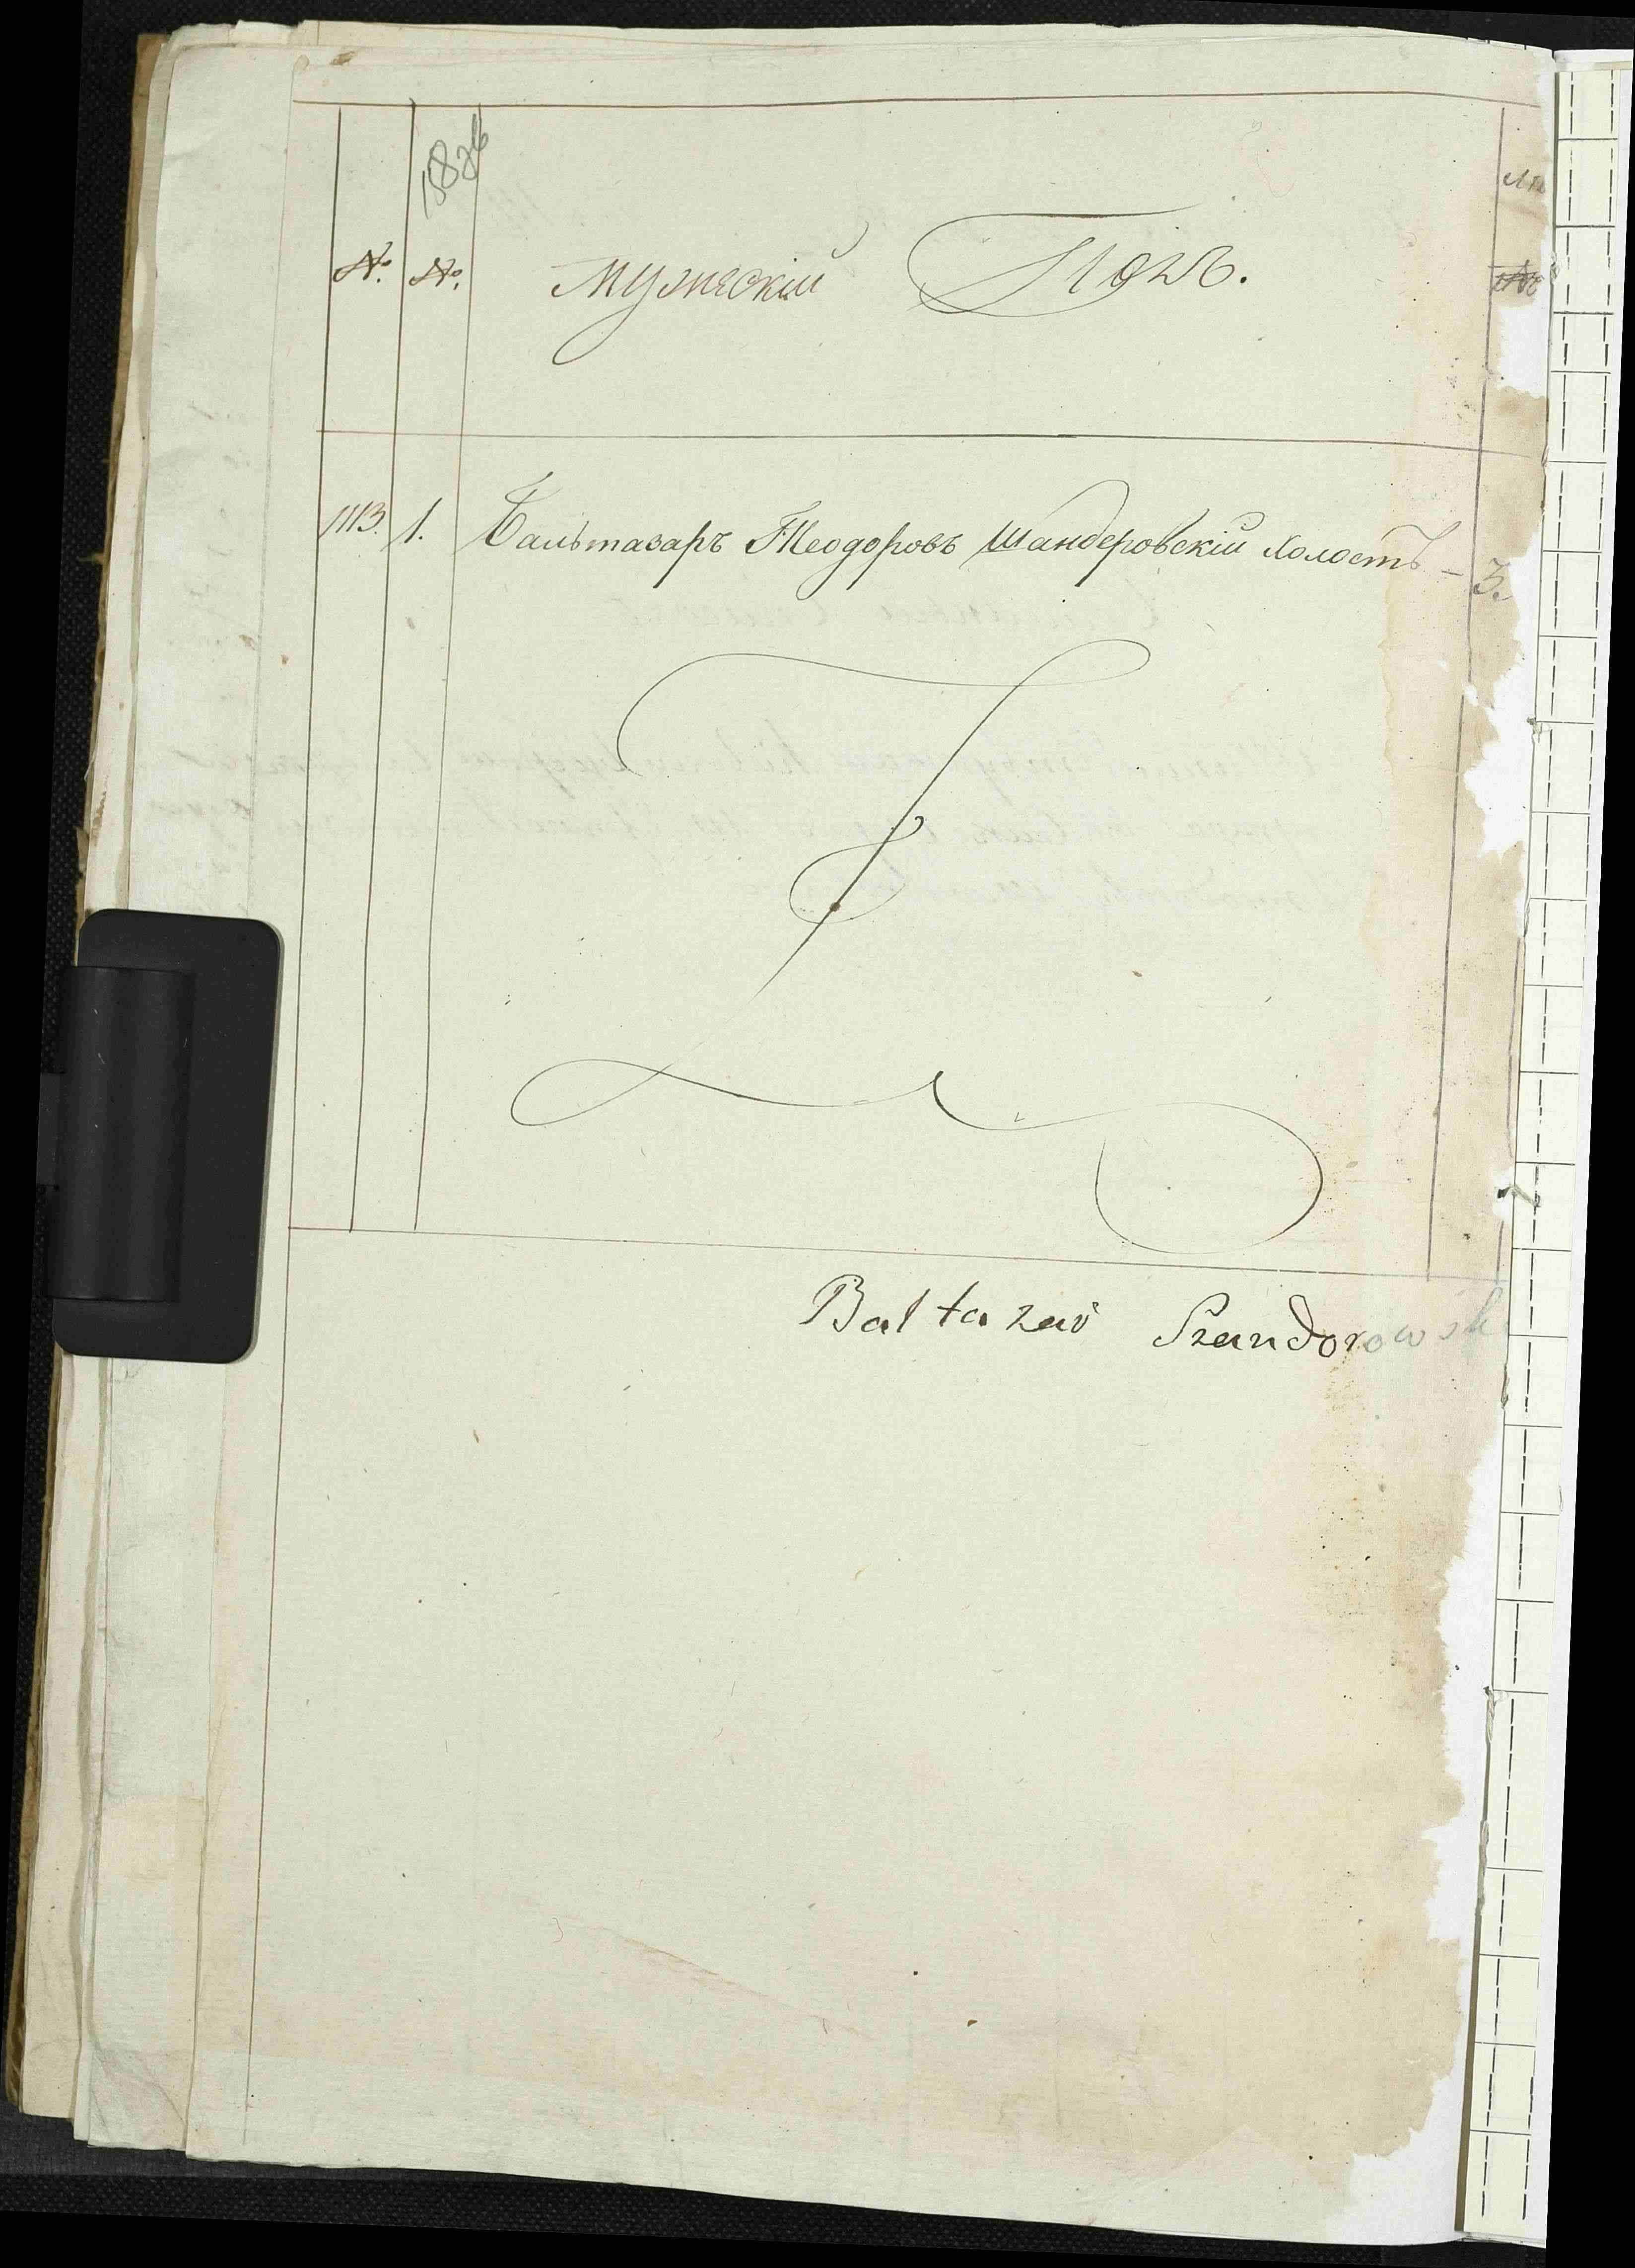 №. №. Мужескій Полъ.
1113. 1. Бальтазаръ Теодоровъ Шандеровскій холостъ - 3.
Baltazar Szandorowsk